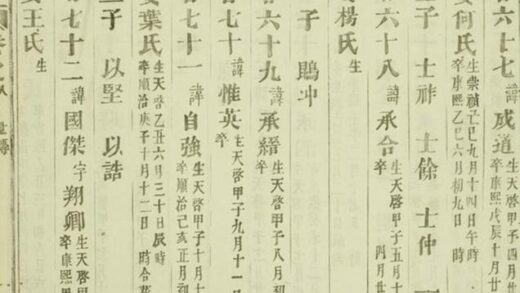 六十七 諱成道 生天啓甲子四月廿
卒康熙戊辰十月廿
何氏 生崇禎己巳九月十四日午時
卒康熙乙巳六月初九日 時
三子 士祚 士餘 士仲
六十八 諱承合 生天啓甲子五月十
卒 四月廿
楊氏 生
卒
子 冲
六十九 諱承縉 生天啓甲子八月初
卒
七十 諱惟英 生天啓甲子九月十一
卒
七十一 諱自強 生天啓甲子十月十
卒順治己亥正月初
葉氏 生天啓乙丑六月三十日辰時
卒順治庚子十月十二日 時合
子 以堅 以誥
七十二 諱國傑 字翔卿 生天啓
卒康熙
王氏 生